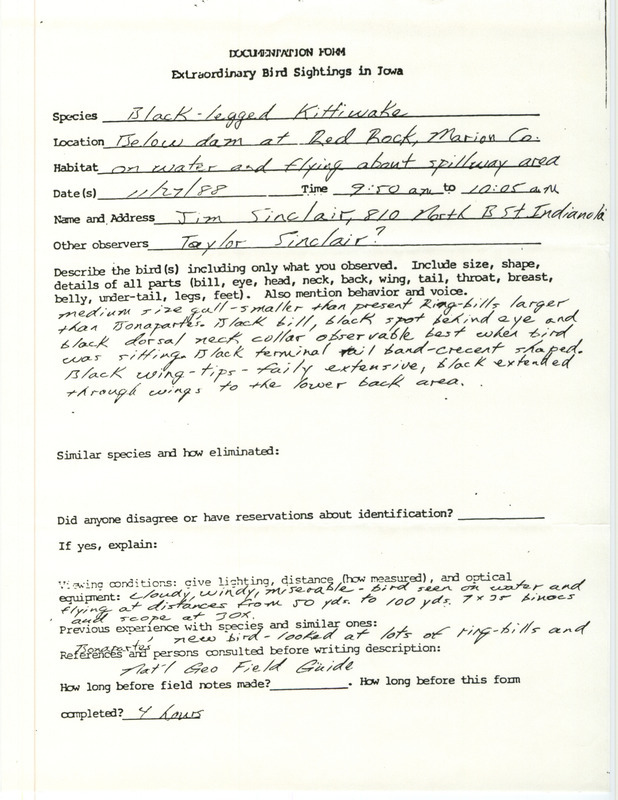 DOCUMENTATION FORM
Extraordinary Bird Sightings in Iowa
Species Black-legged Kittiwake
Location Below dam at Red Rock, Marion Co.
Habitat on water and flying about spillway area
Date(s) 11/27/88 Time 9:50 am to 10:05 am
Name and Address Jim Sinclair, 810 North B St. Indianola
Other observers Taylor Sinclair?
Describe the bird(s) including only what you observed. Include size, shape,
details of all parts (bill, eye, head, neck, back, wing, tail, throat, breast,
belly, under-tail, legs, feet). Also mention behavior and voice.
medium size gull-smaller than present Ring-bills larger
than Bonapartes. Black bill, black spot behind eye and
black dorsal neck collar observable best when bird
was sitting. Black terminal tail band-crecent shaped.
Black wing-tips - faily extensive, black extended
through wings to the lower back area.
Similar species and how eliminated:
Did anyone disagree or have reservations about identification?
If yes, explain:
Viewing conditions: give lighting, distance (how measured), and optical
equipment: cloudy, windy, miserable - bird seen on water and
flying at distances from 50 yds. to 100 yds. 7x35 binocs
and scope at 30X.
Previous experience with species and similar ones:
new bird - looked at lots of ring-bills and
Bonapartes
References and persons consulted before writing description:
Nat'l Geo Field Guide
How long before field notes made? . How long before this form
completed? 4 hours